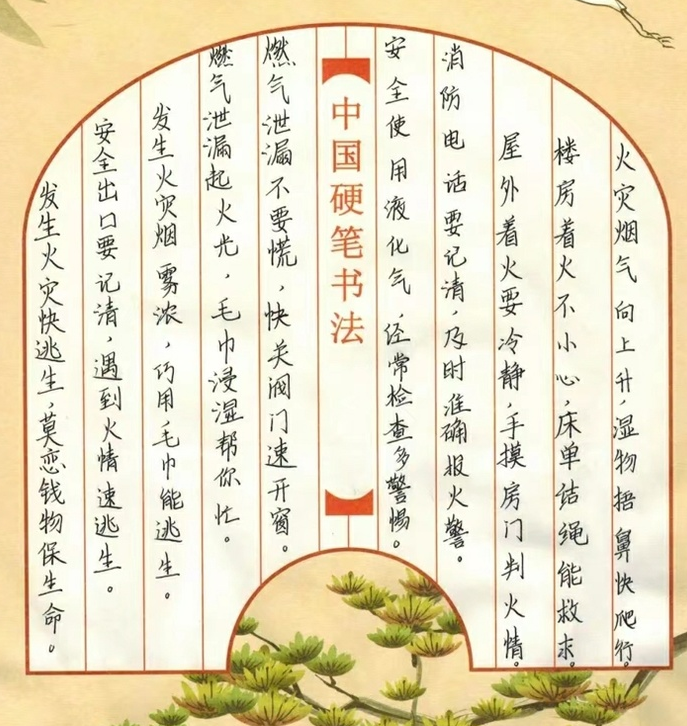 火灾烟气向上升，湿物捂鼻快爬行。
楼房着火不小心，床单结绳能救求。
屋外着火要冷静，手摸房门判火情。
消防电话要记清，及时准确报火警。
安全使用液化气，经常检查多警惕。
中国硬笔书法
燃气泄漏不要慌，快关阀门速开窗。
燃气泄漏起火光，毛巾浸湿帮你忙。
发生火灾烟雾浓，巧用毛巾能逃生。
安全出口要记清，遇到火情速逃生。
发生火灾快逃生，莫恋钱物保生命。